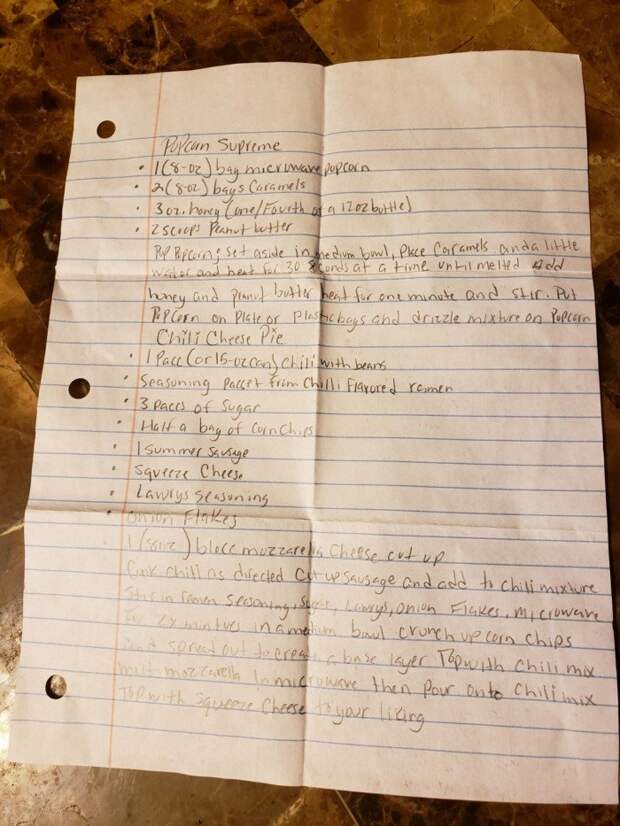 Popcorn Supreme
• 1 (8-oz) bag microwave popcorn
• 2 (8-oz) bags Caramels
• 3 oz. honey (one/fourth of a 12oz bottle)
• 2 scoops Peanut butter
Pop Popcorn; Set aside in medium bowl, Place Caramels and a little
water and heat for 30 seconds at a time until melted Add
honey and peanut butter heat for one minute and stir. Put
Popcorn on Plate or plastic bags and drizzle mixture on Popcorn
Chili Cheese Pie
• 1 Pacc (or 15-oz can) Chili with beans
• Seasoning Paccet from Chilli flavored ramen
• 3 Paccs of Sugar
• Half a bag of Corn Chips
• 1 Summer Sausage
• Squeeze Cheese
• Lawrys Seasoning
• Onion Flakes
1 (8oz) blocc mozzarella Cheese cut up
Cook Chili as directed Cut up sausage and add to Chili mixture
Stir in ramen Seasoning, Sugar, Lawrys, Onion Flakes, microwave
for 2 minutes in a medium bowl crunch up corn chips
and spread out to create a base layer Top with Chili mix
melt mozzarella in microwave then pour onto Chili mix
Top with Squeeze Cheese to your liking